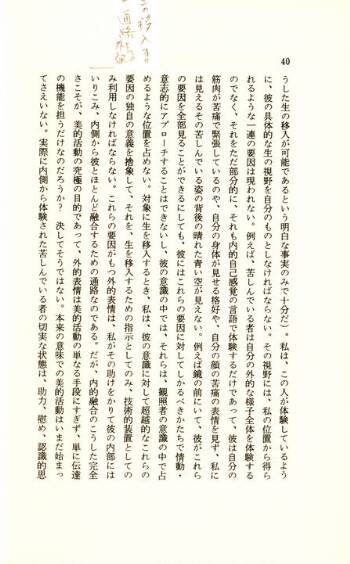 40
うした生の移入が可能であるという明白な事実のみで十分だ)。私は、この人が体験しているよう
に、彼の具体的な生の視野を自分のものとしなければならない。その視野には、私の位置から得ら
れるような一連の要因は現われない。例えば、苦しんでいる者は自分の外的な様子全体を体験する
のでなく、それをただ部分的に、それも内的自己感覚の言語で体験するだけであって、彼は自分の
筋肉が苦痛で緊張しているのや、自分の身体が見せる格好や、自分の顔の苦痛の表情を見ず、私に
は見えるその苦しんでいる姿の背後の晴れた青い空が見えない。例えば鏡の前にいて、彼がこれら
の要因を全部見ることができるにしても、彼にはこれらの要因に対してしかるべきかたちで情動・
意志的にアプローチすることはできないし、彼の意識の中では、それらは、観照者の意識の中で占
めるような位置を占めない。対象に生を移入するとき、私は、彼の意識に対して超越的なこれらの
要因の独自の意義を捨象して、それを、生を移入するための指示としてのみ、技術的装置としての
み利用しなければならない。これらの要因がもつ外的表情は、私がその助けをかりて彼の内部には
いりこみ、内側から彼とほとんど融合するための通路なのである。だが、内的融合のこうした完全
さこそが、美的活動の究極の目的であって、外的表情は美的活動の単なる手段にすぎず、単に伝達
の機能を担うだけなのだろうか? 決してそうではない。本来の意味での美的活動はいまだ始まっ
てさえいない。実際に内側から体験された苦しんでいる者の切実な状態は、助力、慰め、認識的思